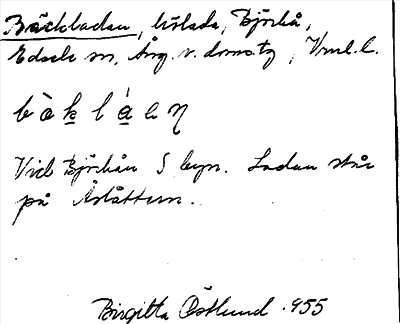 Bäckladan, hölada, Björkå,
Edsele sn, Ång. v. domstg, Vml. l.
b ò k l à a n
Vid Björkån S byn. Ladan står
på Åslåttern.
Birgitta Östlund . 955